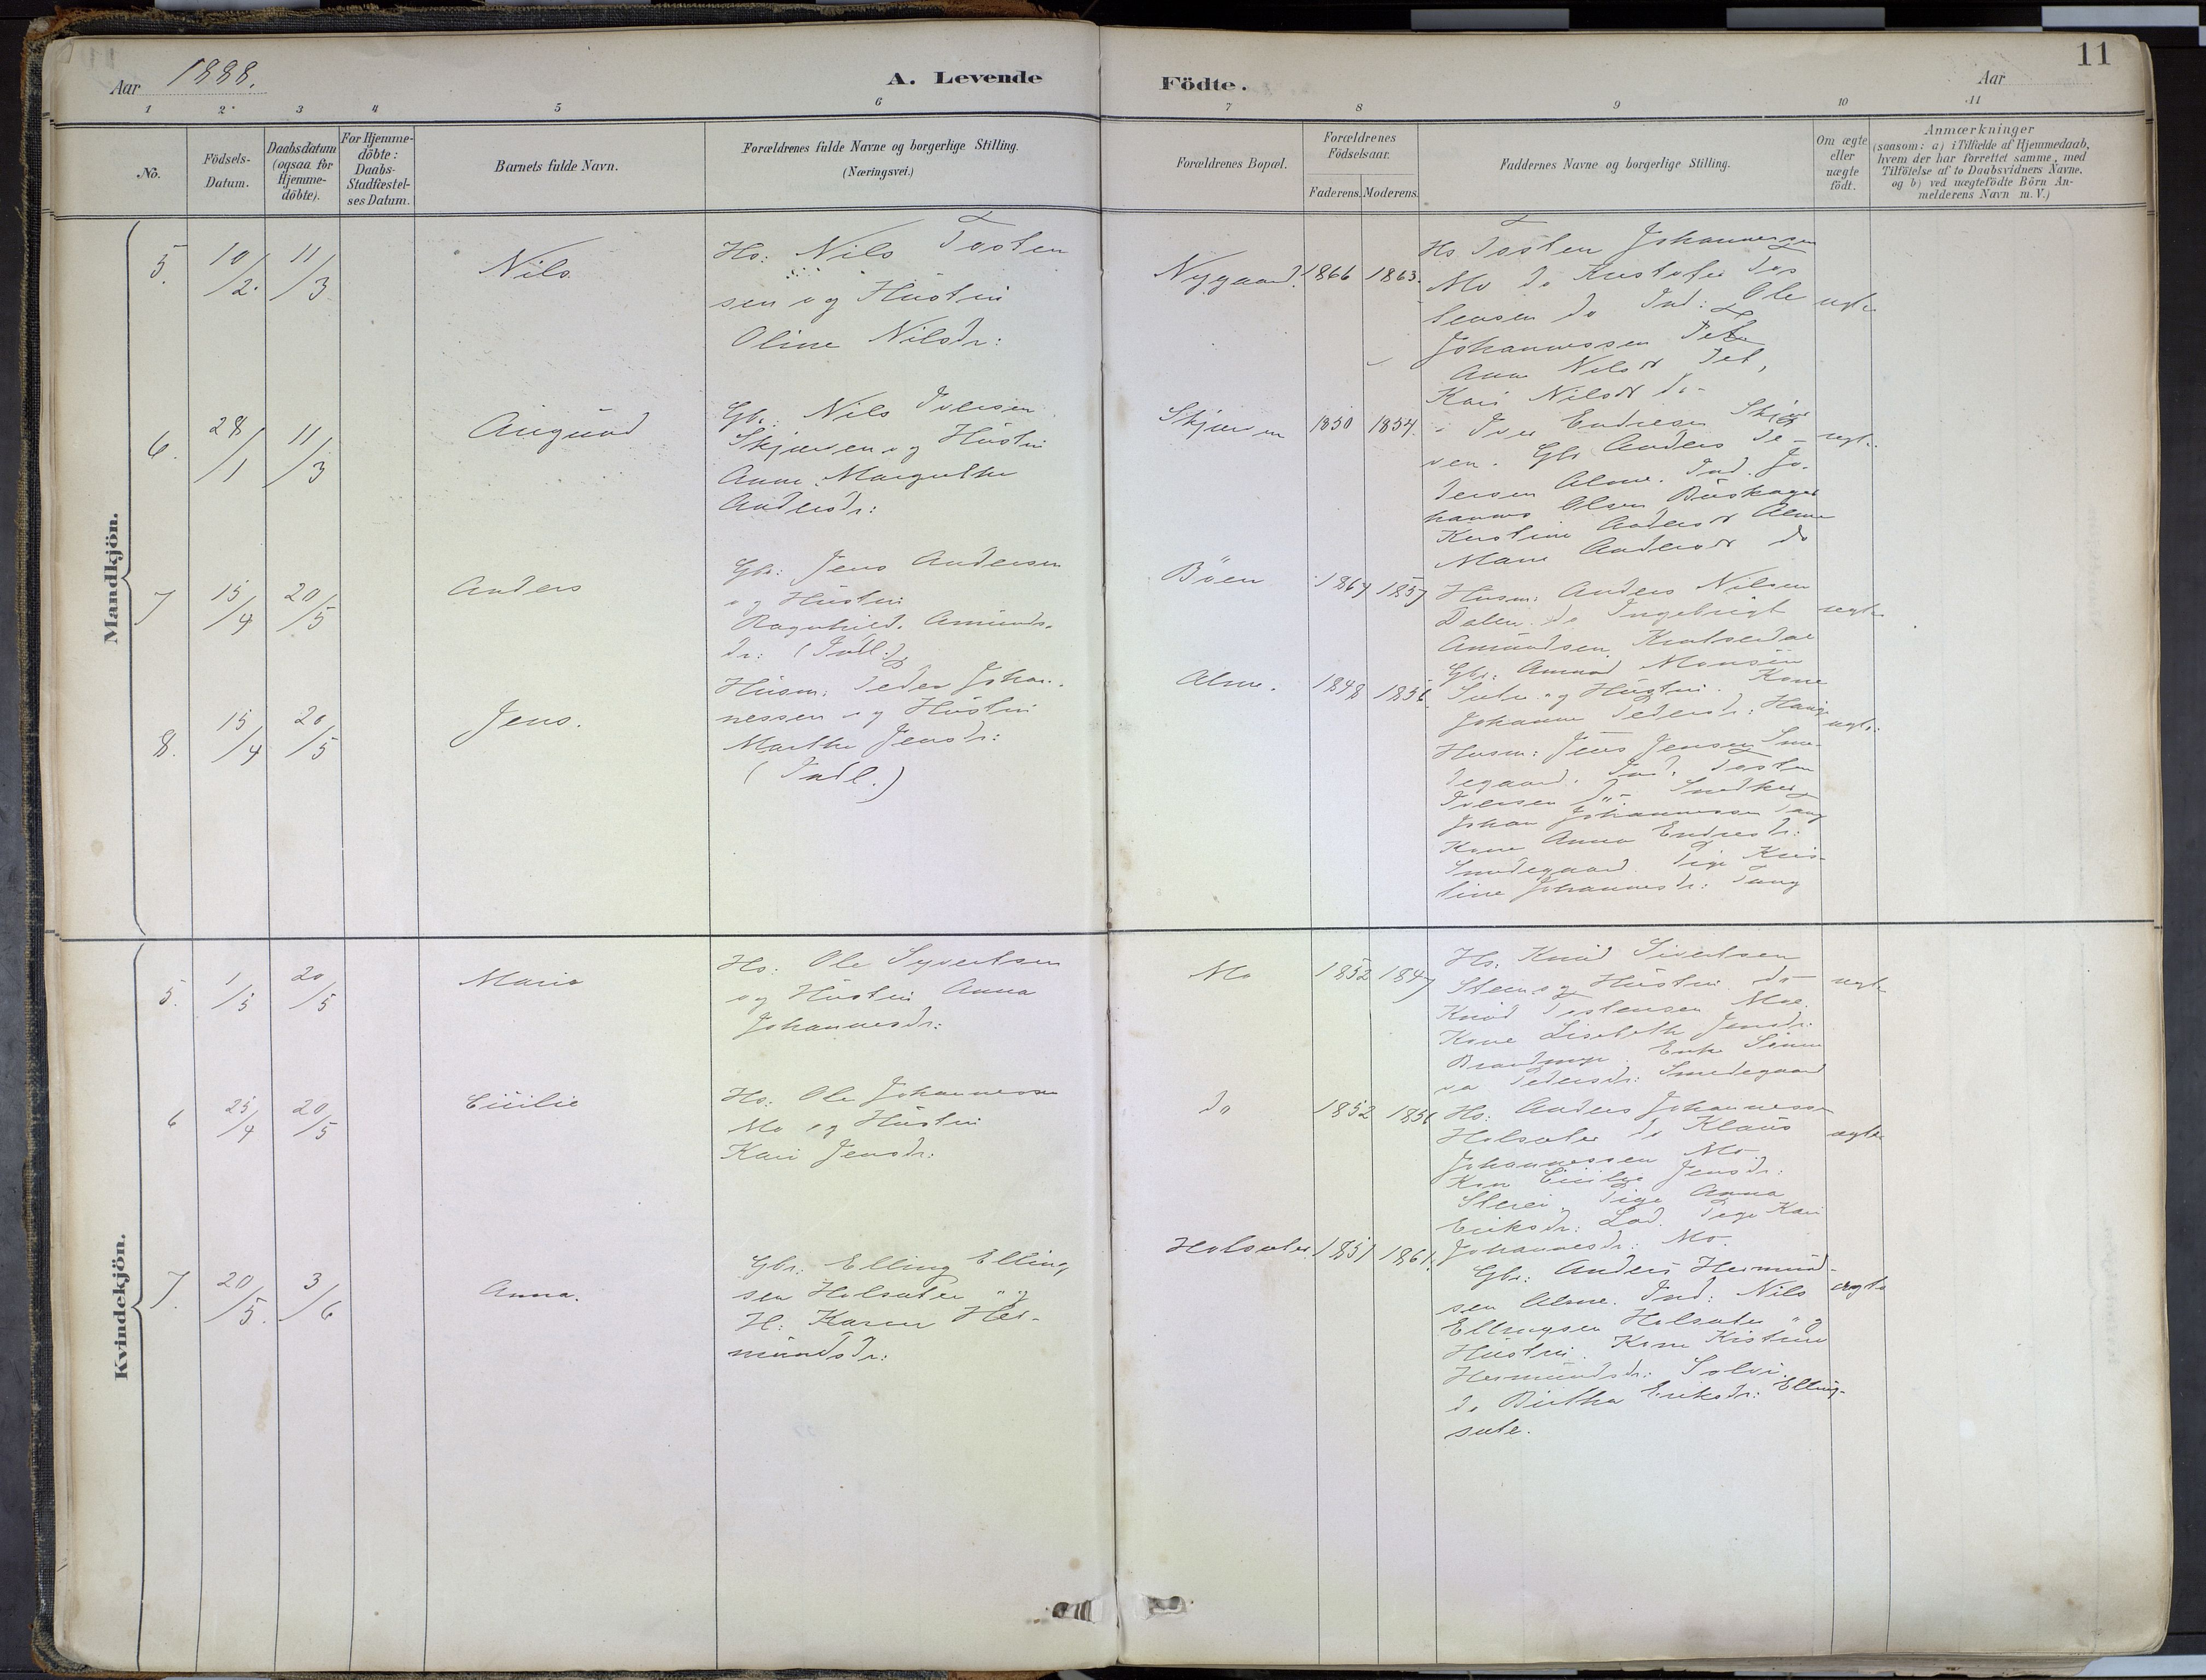 11
Aar 1888.
A. Levende Födte.
Aar
1 2 3 4 5 6 7 8 9 10 11
No.
Födsels-Datum.
Daabsdatum (ogsaa for Hjemme-döbte).
For Hjemme-döbte: Daabs-Stadfæstel-ses Datum.
Barnets fulde Navn.
Forældrenes fulde Navne og borgerlige Stilling.
(Næringsvei.)
Forældrenes Bopæl.
Forældrenes Födselsaar.
Faderens. Moderens.
Faddernes Navne og borgerlige Stilling.
Om ægte eller uægte födt.
Anmærkninger
(saasom: a) i Tilfælde af Hjemmedaab,
hvem der har forrettet samme, med
Tilföielse af to Daabsvidners Navne.
og b) ved uægtefödte Börn An-
melderens Navn m. V.)
Mandkjön.
5. 10/2. 11/3 Nils.
Hs: Nils Tosten
sen og Hustru
Oline Nilsdr:
Nygaard. 1866 1863.
Hs Tosten Johannessen
Mo do Kristofer Tos
tensen do Ind: Ole
Johannessen
Anna Nilsdr
Kari Nilsdr do
ægte
6. 28/1 11/3 Amund
Gbr: Nils Iversen
Skjerven og Hustru
Anne Margrethe
Andersdr:
Skjerven 1850 1854.
Iver Endresen Skjer
ven. Gbr Anders
dersen Alme. Ind. Jo-
hannes Olsen
Kirstine Andersdr Alme
Marie Andersdr do
ægte
7 15/4 20/5 Anders
Gbr: Jens Andersen
og Hustru
Ragnhild. Amunds-
dr: (Indl.)
Böen 1867 1857
Husm: Anders Nilsen
Dalen. do Ingebrigt
Amundsen
Gbr: Amund Monsen
Sæter og Hustru. Kone
Johanne Pedersdr: Hauge
ægte
8. 15/4 20/5 Jens.
Husm: Peder Johan-
nessen og Hustru
Marthe Jensdr:
(Indl.)
Alme. 1848 1856.
Husm: Jens Jensen Sme-
degaard. Ind. Tosten
Iversen do. Snedker
Johan Johannessen Tang
Kone Anna Endresdr:
Smedegaard. Pige Kris-
tine Johannesdr: Tang
ægte
Kvindekjön.
5. 1/5 20/5 Maria
Hs: Ole Syvertsen
og Hustru Anna
Johannesdr:
Mo 1852 1847
Hs: Knud Sivertsen
Steen og Hustru. do
Knud Tostensen Moe.
Kone Lisbeth Jensdr:
Brandmyr. Enke Sünni
va Pedersdr: Smedegaard
ægte
6 25/4 20/5 Cicilie
Hs: Ole Johannessen
Mo og Hustru
Kari Jensdr:
do 1852 1856
Hs: Anders Johannessen
Holsæter do Klaus
Johannessen Mo
Kone Cicilie Jensdr:
Steen. Pige Anna
Eriksdr: Lad. Pige Kari
Johannesdr: Mo.
ægte
7. 20/5. 3/6 Anna.
Gbr: Elling Elling
sen Holsæter og
H: Karen Her-
mundsdr:
Holsæter. 1851 1861.
Gbr: Anders Hermund-
sen Alme. Ind: Nils
Ellingsen Holsæter og
Hustru. Kone Kistine
Hermundsdr: Solvi.
do Birtha Eriksdr: Elling-
sæte.
ægte